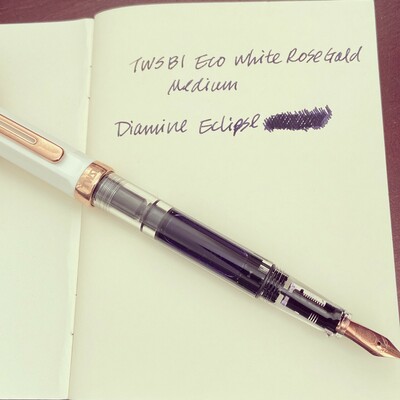 TWSBI Eco White Rose Gold
Medium
Diamine Eclipse